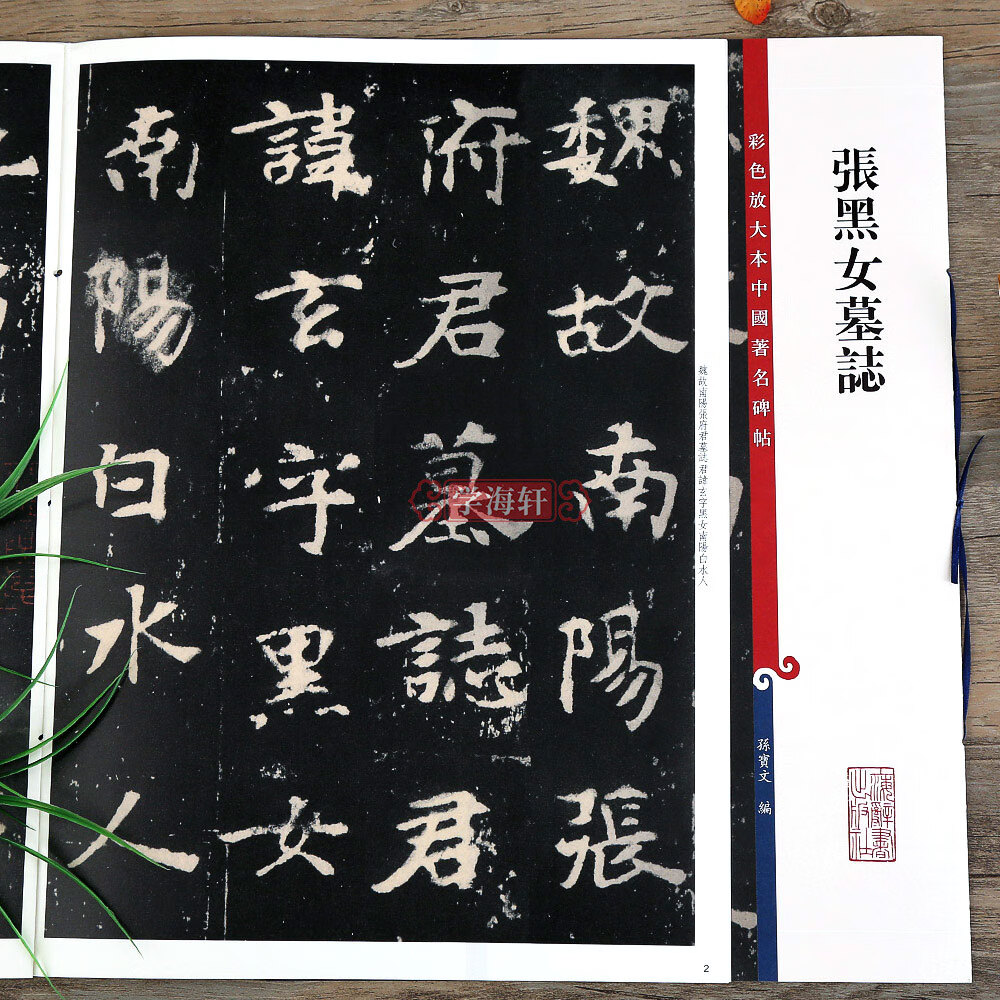 張黑女墓誌
彩色放大本中國著名碑帖
孫寶文 編
海辭書
出版社
魏故南陽張
府君墓誌君
諱玄字黑女
南陽白水人
魏故南陽張府君墓誌君諱玄字黑女南陽白水人
学海轩
2